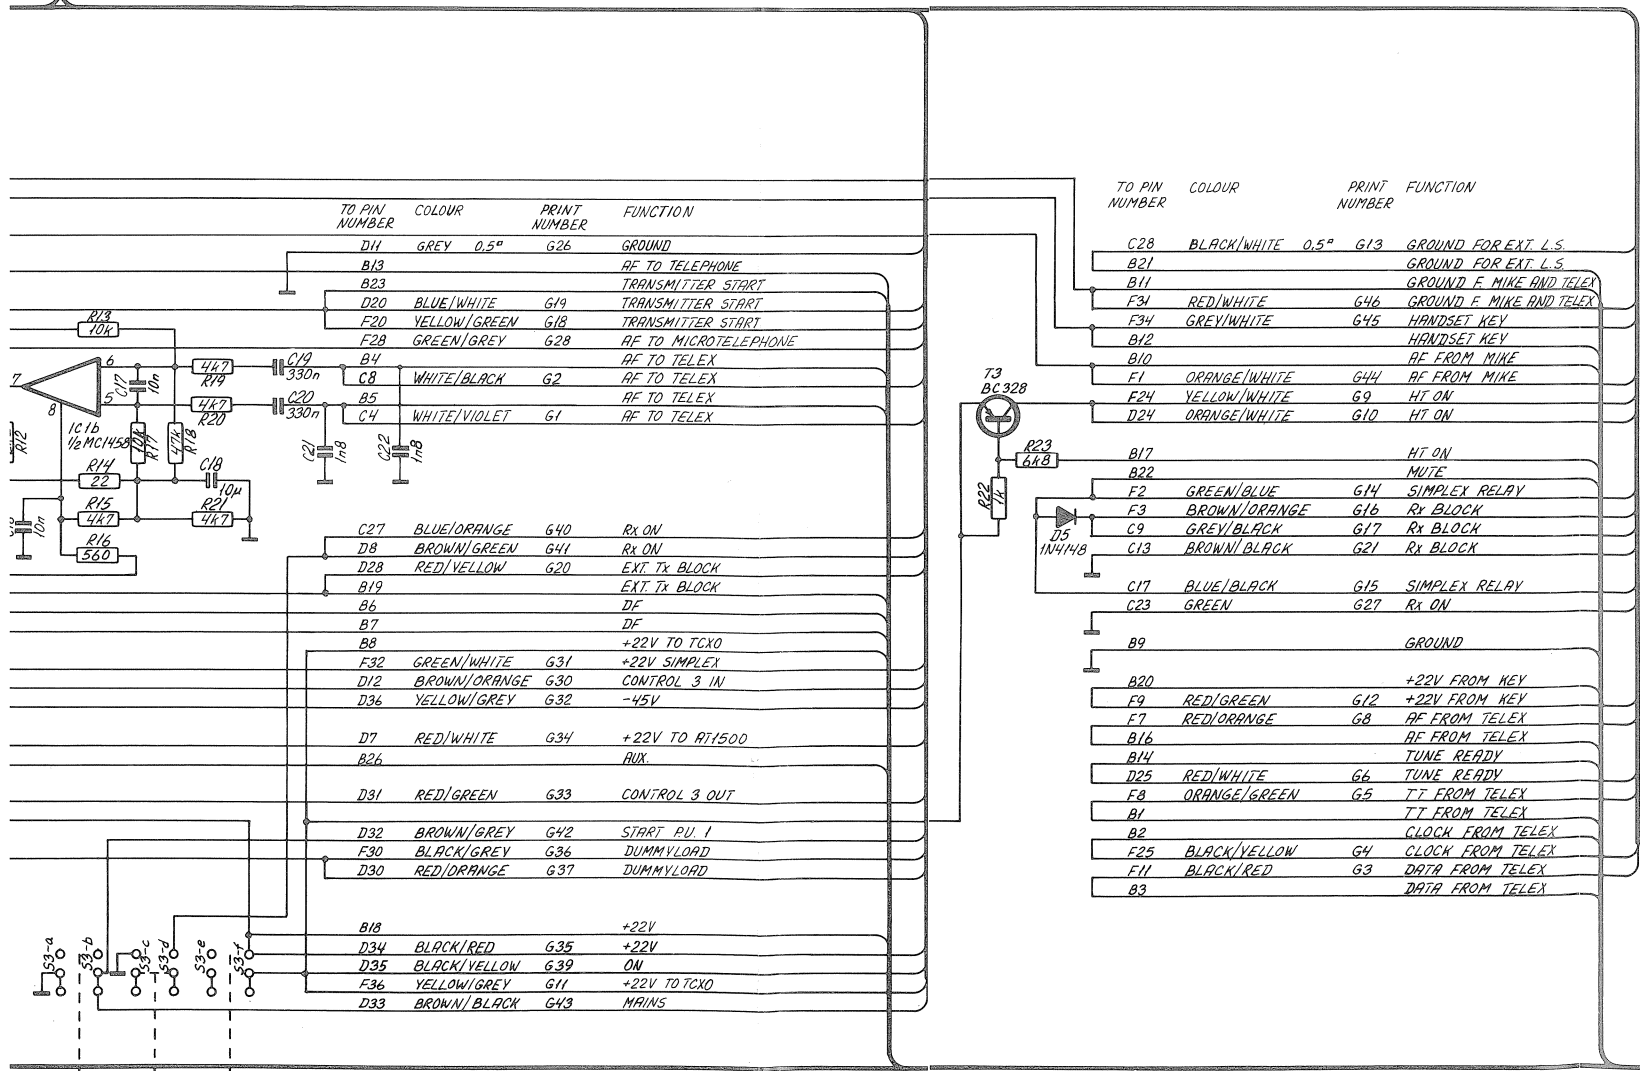 TO PIN NUMBER COLOUR PRINT NUMBER FUNCTION
D11 GREY 0.5□ G26 GROUND
B13 AF TO TELEPHONE
B23 TRANSMITTER START
D20 BLUE/WHITE G19 TRANSMITTER START
F20 YELLOW/GREEN G18 TRANSMITTER START
F28 GREEN/GREY G28 AF TO MICROTELEPHONE
B4 AF TO TELEX
C8 WHITE/BLACK G2 AF TO TELEX
B5 AF TO TELEX
C4 WHITE/VIOLET G1 AF TO TELEX
C27 BLUE/ORANGE G40 Rx ON
D8 BROWN/GREEN G41 Rx ON
D28 RED/YELLOW G20 EXT. Tx BLOCK
B19 EXT. Tx BLOCK
B6 DF
B7 DF
B8 +22V TO TCXO
F32 GREEN/WHITE G31 +22V SIMPLEX
D12 BROWN/ORANGE G30 CONTROL 3 IN
D36 YELLOW/GREY G32 -45V
D7 RED/WHITE G34 +22V TO AT1500
B26 AUX.
D31 RED/GREEN G33 CONTROL 3 OUT
D32 BROWN/GREY G42 START P.U. 1
F30 BLACK/GREY G36 DUMMYLOAD
D30 RED/ORANGE G37 DUMMYLOAD
B18 +22V
D34 BLACK/RED G35 +22V
D35 BLACK/YELLOW G39 ON
F36 YELLOW/GREY G11 +22V TO TCXO
D33 BROWN/BLACK G43 MAINS
R13
10k
6
7
5
8
C17
10n
4k7
R19
C19
330n
4k7
R20
C20
330n
IC1b
1/2 MC1458
R12
10k
R17
47k
R18
C21
1n8
C22
1n8
R14
22
C18
10µ
R15
4k7
R21
4k7
10n
R16
560
S3-a
S3-b
S3-c
S3-d
S3-e
S3-f
T3
BC328
R23
6k8
R22
1k
D5
1N4148
TO PIN NUMBER COLOUR PRINT NUMBER FUNCTION
C28 BLACK/WHITE 0.5□ G13 GROUND FOR EXT. L.S.
B21 GROUND FOR EXT. L.S.
B11 GROUND F. MIKE AND TELEX
F31 RED/WHITE G46 GROUND F. MIKE AND TELEX
F34 GREY/WHITE G45 HANDSET KEY
B12 HANDSET KEY
B10 AF FROM MIKE
F1 ORANGE/WHITE G44 AF FROM MIKE
F24 YELLOW/WHITE G9 HT ON
D24 ORANGE/WHITE G10 HT ON
B17 HT ON
B22 MUTE
F2 GREEN/BLUE G14 SIMPLEX RELAY
F3 BROWN/ORANGE G16 Rx BLOCK
C9 GREY/BLACK G17 Rx BLOCK
C13 BROWN/BLACK G21 Rx BLOCK
C17 BLUE/BLACK G15 SIMPLEX RELAY
C23 GREEN G27 Rx ON
B9 GROUND
B20 +22V FROM KEY
F9 RED/GREEN G12 +22V FROM KEY
F7 RED/ORANGE G8 AF FROM TELEX
B16 AF FROM TELEX
B14 TUNE READY
D25 RED/WHITE G6 TUNE READY
F8 ORANGE/GREEN G5 TT FROM TELEX
B1 TT FROM TELEX
B2 CLOCK FROM TELEX
F25 BLACK/YELLOW G4 CLOCK FROM TELEX
F11 BLACK/RED G3 DATA FROM TELEX
B3 DATA FROM TELEX